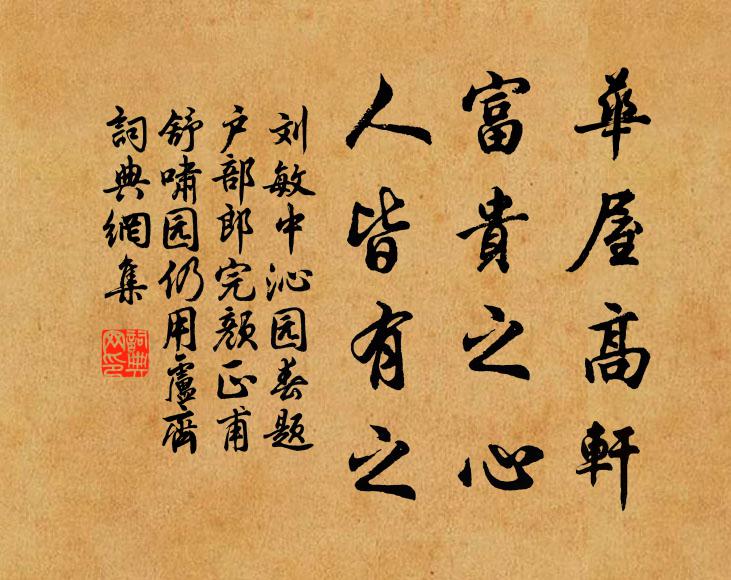 華屋高軒
富貴之心
人皆有之
刘敏中沁园春题
户部郎完颜正甫
舒啸园仍用廬齋
詞典網集
詞典
网印